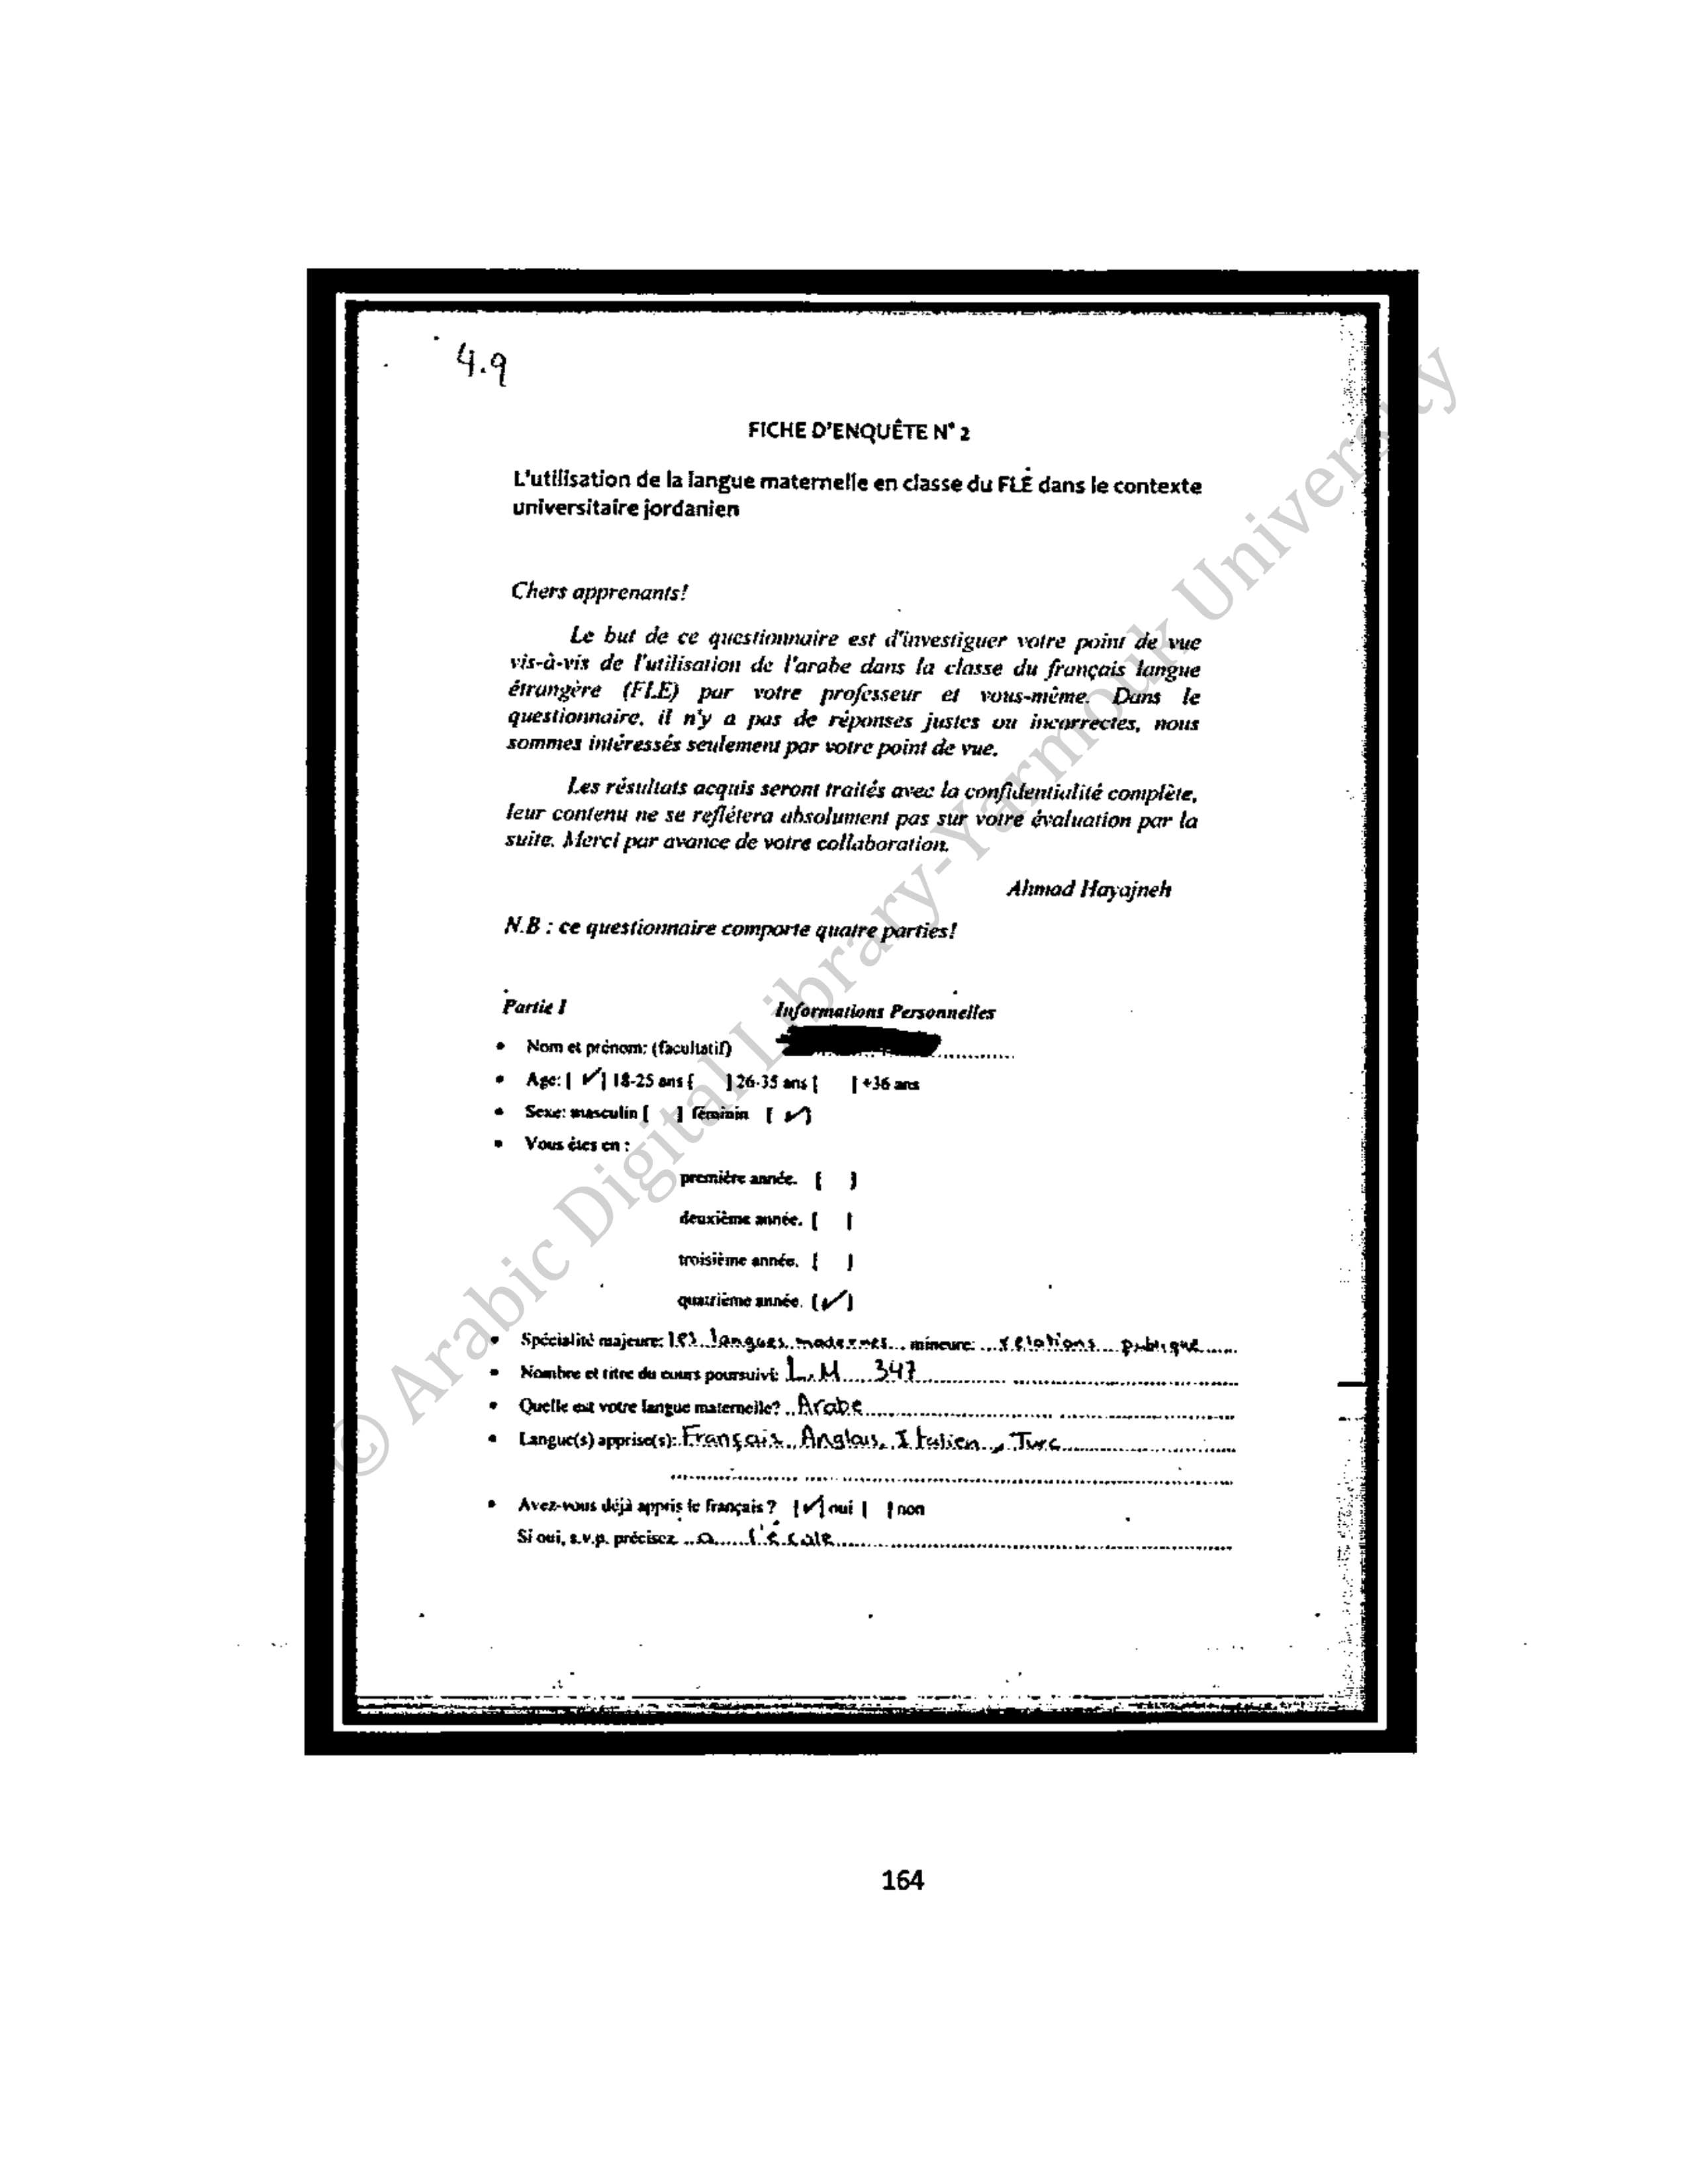 4.9
FICHE D'ENQUÊTE N° 2
L'utilisation de la langue maternelle en classe du FLÉ dans le contexte
universitaire jordanien
Chers apprenants!
Le but de ce questionnaire est d'investiguer votre point de vue
vis-à-vis de l'utilisation de l'arabe dans la classe du français langue
étrangère (FLE) par votre professeur et vous-même. Dans le
questionnaire, il n'y a pas de réponses justes ou incorrectes, nous
sommes intéressés seulement par votre point de vue.
Les résultats acquis seront traités avec la confidentialité complète,
leur contenu ne se reflétera absolument pas sur votre évaluation par la
suite. Merci par avance de votre collaboration.
Ahmad Hayajneh
N.B : ce questionnaire comporte quatre parties!
Partie I Informations Personnelles
• Nom et prénom: (facultatif)
• Age: [ ✓] 18-25 ans [ ] 26-35 ans [ ] +36 ans
• Sexe: masculin [ ] féminin [ ✓]
• Vous êtes en :
première année. [ ]
deuxième année. [ ]
troisième année. [ ]
quatrième année. [✓]
• Spécialité majeure: les langues modernes mineure: relations publique
• Nombre et titre du cours poursuivi: L.M 347
• Quelle est votre langue maternelle? Arabe
• Langue(s) apprise(s): Français, Anglais, Italien, Turc
• Avez-vous déjà appris le français ? [✓] oui [ ] non
Si oui, s.v.p. précisez a l'école
164
© Arabic Digital Library-Yarmouk University